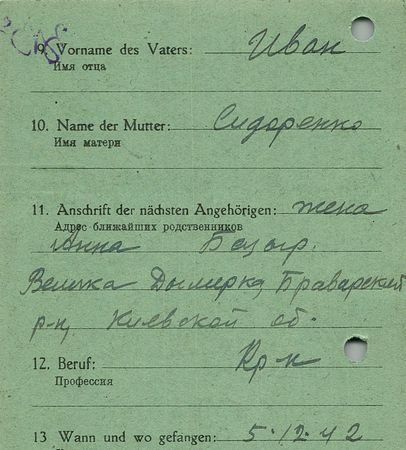 9. Vorname des Vaters: Иван
Имя отца
10. Name der Mutter: Сидоренко
Имя матери
11. Anschrift der nächsten Angehörigen: жена
Адрес ближайших родственников
Анна
Велика Дымерка, Браварский
р-н, Киевской об.
12. Beruf: Кр-н
Профессия
13 Wann und wo gefangen: 5.12.42